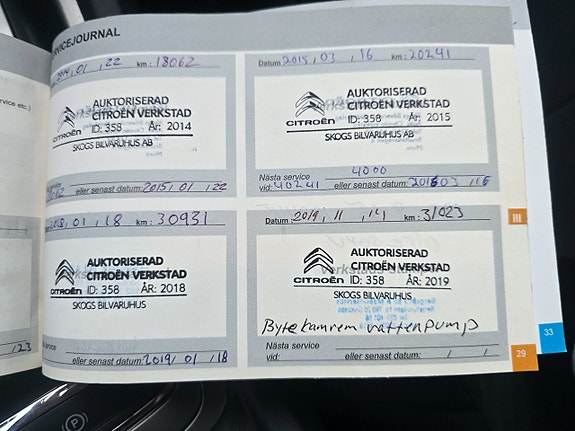 SERVICEJOURNAL
2014, 01, 22 km: 18062
AUKTORISERAD
CITROËN VERKSTAD
CITROËN ID: 358 År: 2014
SKOGS BILVARUHUS AB
eller senast datum: 2015, 01, 22
Datum: 2015, 03, 16 km: 20241
AUKTORISERAD
CITROËN VERKSTAD
CITROËN ID: 358 År: 2015
SKOGS BILVARUHUS AB
Nästa service 4000
vid: 40241 eller senast datum: 2016 03, 16
2018, 01, 18 km: 30931
AUKTORISERAD
CITROËN VERKSTAD
CITROËN ID: 358 År: 2018
SKOGS BILVARUHUS
eller senast datum: 2019, 01, 18
Datum: 2019, 11, 14 km: 31023
AUKTORISERAD
CITROËN VERKSTAD
CITROËN ID: 358 År: 2019
SKOGS BILVARUHUS
Byte kamrem vattenpump
Nästa service
vid: eller senast datum: / /
III
29
33
service etc.)
, 23